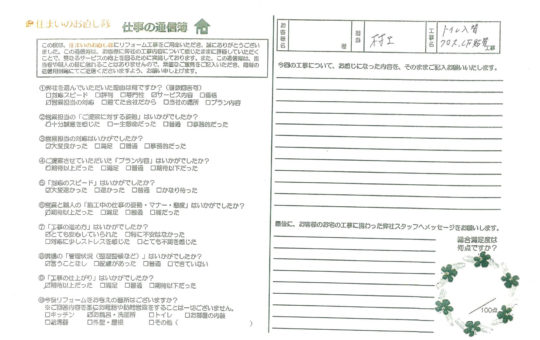 住まいのお直し隊
仕事の通信簿
この度は、住まいのお直し隊にリフォーム工事をご用命いただき、誠にありがとうござい
ました。この通信簿は、お客様に弊社の工事内容について感じたままに評価していただく
ことで、更なるサービスの向上を図るために実施しております。また、この通信簿は、担
①弊社を選んでいただいた理由は何ですか？（複数回答可）
□対応スピード □評判 □専門性 ☑サービス内容 □価格
☑営業担当の対応 □建てた会社だから □当社の場所 □プラン内容
②営業担当の「ご提案に対する姿勢」はいかがでしたか？
☑十分誠意を感じた □一生懸命だった □普通 □事務的だった
③営業担当の対応はいかがでしたか？
☑大変良かった □満足 □普通 □事務的だった
④ご提案させていただいた「プラン内容」はいかがでしたか？
☑期待以上だった □満足 □普通 □期待以下だった
⑤「対応のスピード」はいかがでしたか？
☑大変速かった □速かった □普通 □かなり待った
⑥営業と職人の「施工中の仕事の姿勢・マナー・態度」はいかがでしたか？
☑期待以上だった □満足 □普通 □雑だった
⑦「工事の進め方」はいかがでしたか？
☑とても安心していられた □特に不安はなかった
□対応に少しストレスを感じた □とても不満を感じた
⑧現場の「管理状況（整理整頓など）」はいかがでしたか？
☑言うことなし □配慮があった □普通 □できていない
⑨「工事の仕上がり」はいかがでしたか？
☑期待以上だった □満足 □普通 □期待以下だった
⑩今後リフォームをお考えの箇所はございますか？
※ご回答内容を基にお電話や訪問営業をすることは一切ございません。
□キッチン ☑お風呂・洗面所 □トイレ □お部屋の内装
□給湯器 □外壁・屋根 □その他（ ）
お客様名 様
担当 村上
工事名 トイレ入替
クロス、CF貼替 工事
今回の工事について、お感じになった内容を、そのままご記入お願いいたします。
最後に、お客様のお宅の工事に携わった弊社スタッフへメッセージをお願いします。
総合満足度は
何点ですか？
/100点